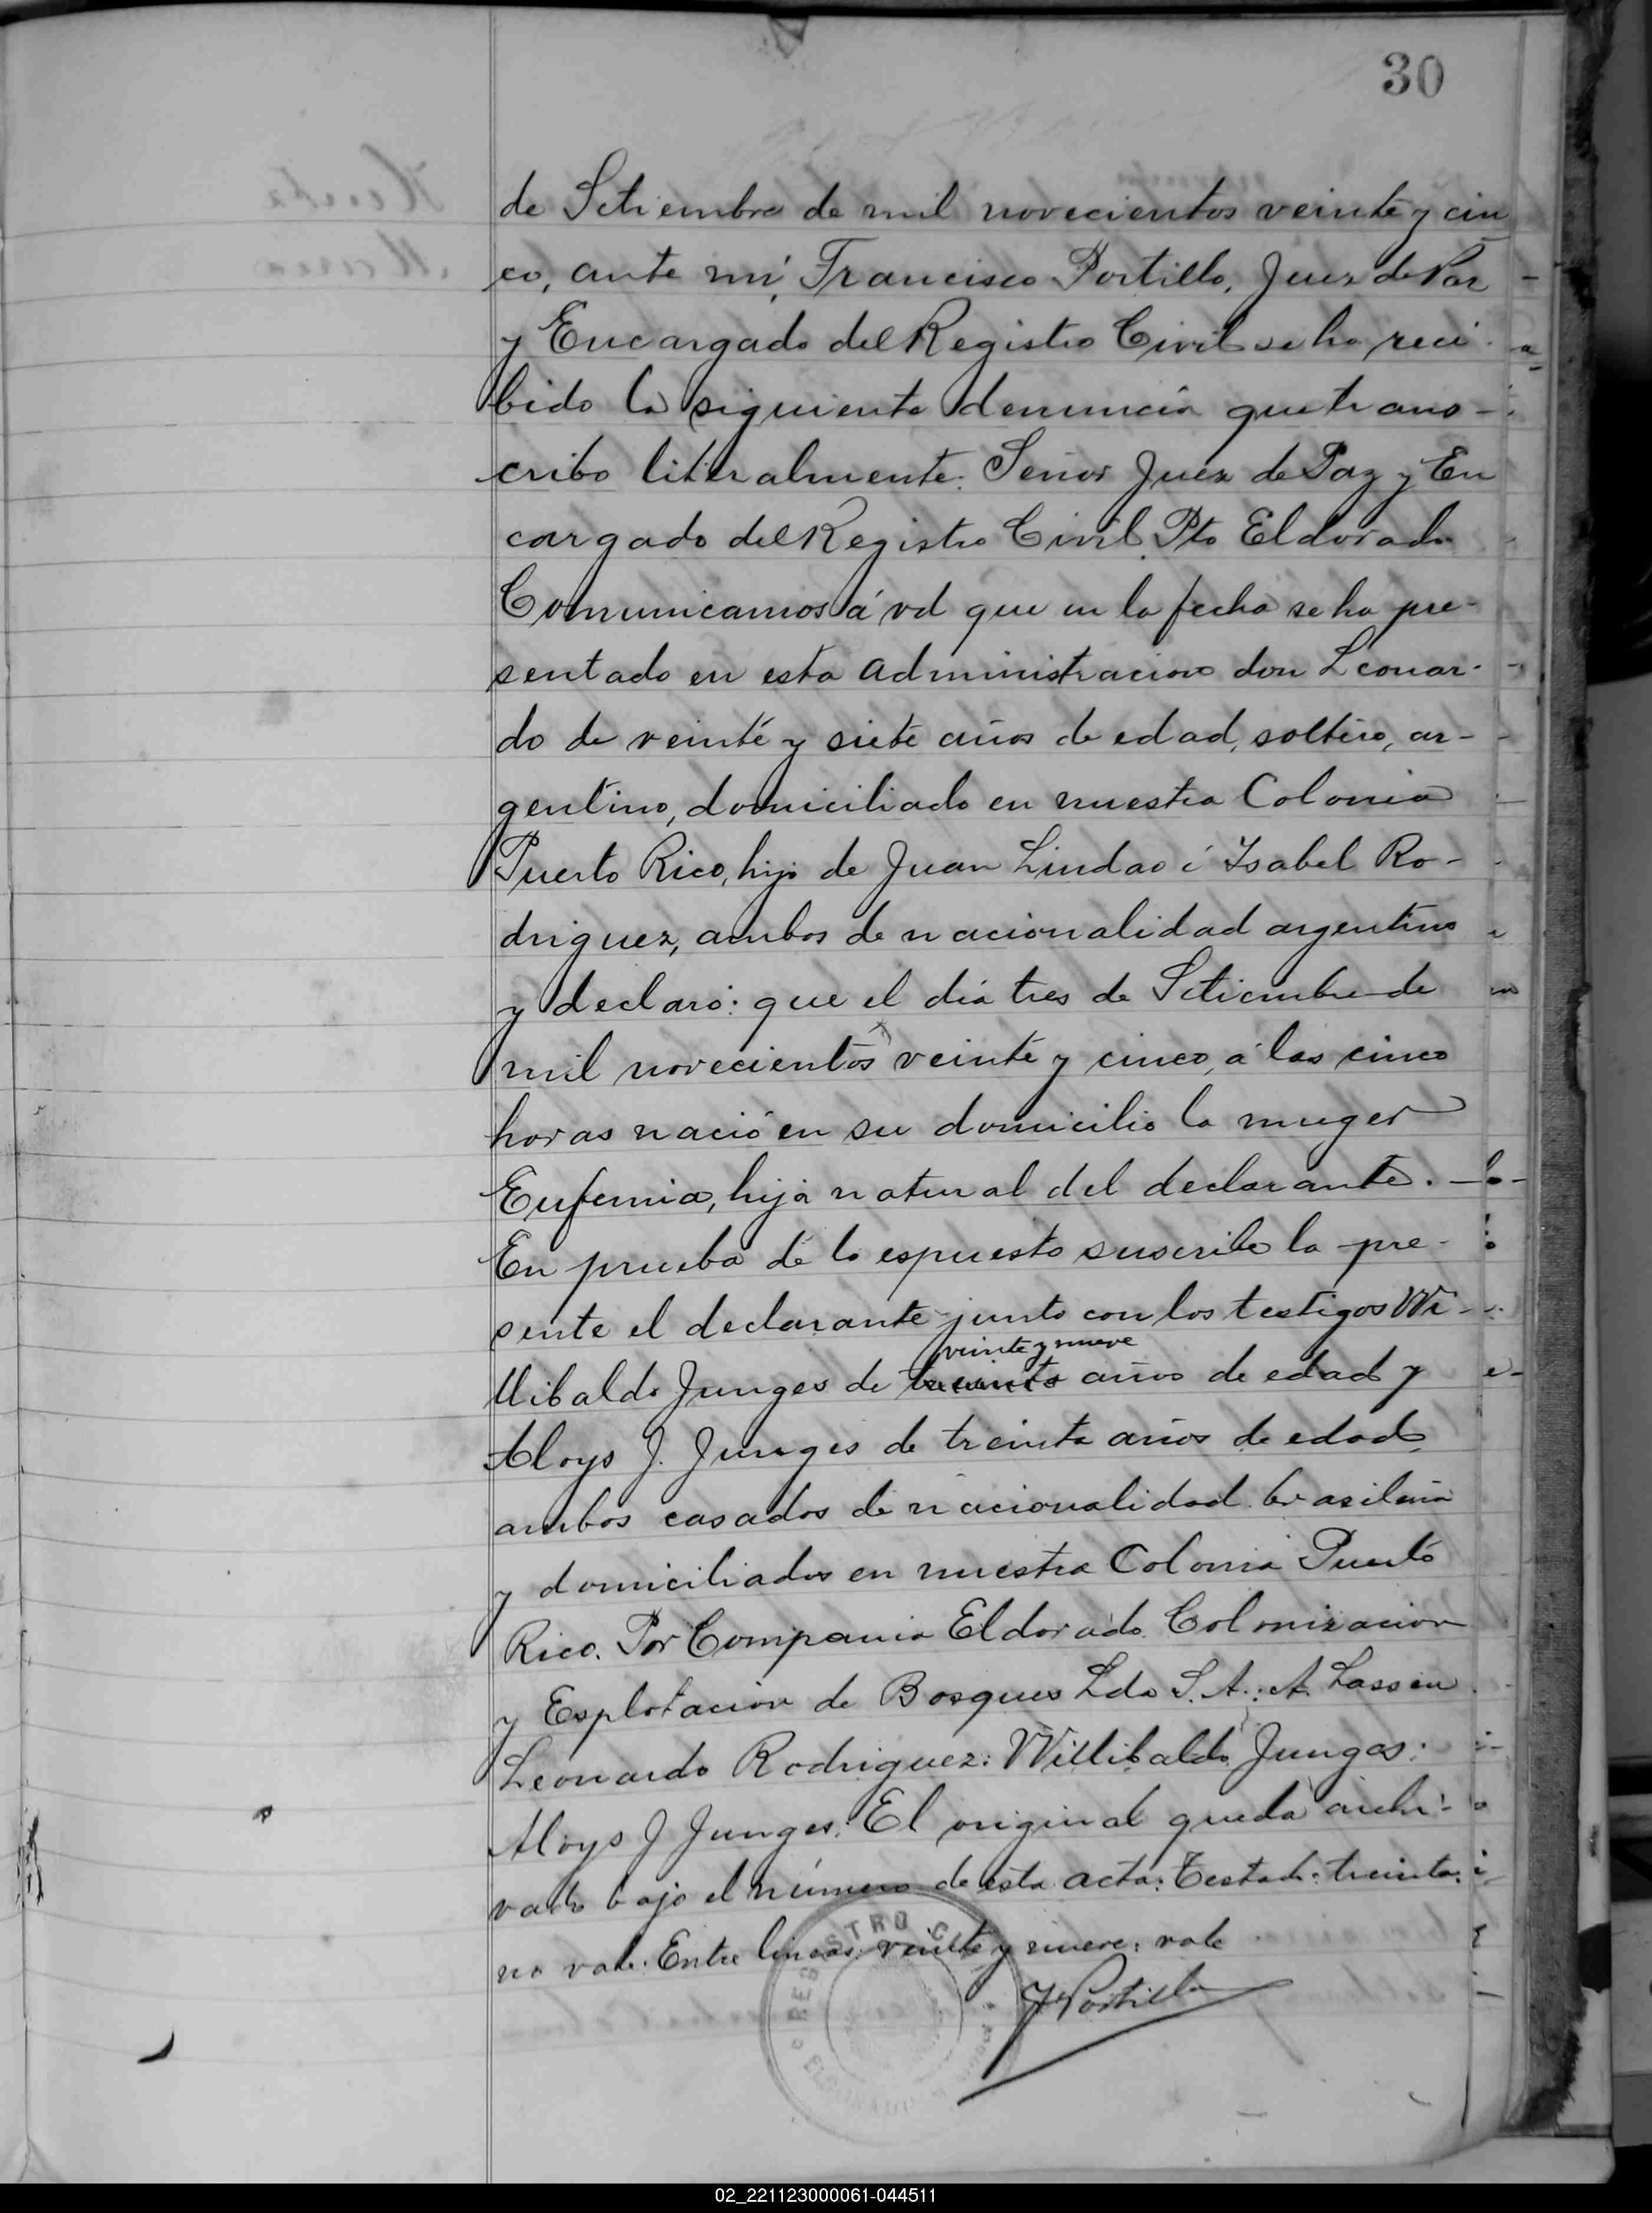 30
de Setiembre de mil novecientos veinte y cin
co, ante mi, Francisco Portillo, Juez de Paz
y Encargado del Registro Civil se ha reci-
bido la siguiente denuncia que trans-
cribo literalmente: Señor Juez de Paz y En
cargado del Registro Civil. Pto Eldorado
Comunicamos á vd que en la fecha se ha pre-
sentado en esta administracion don Leonar-
do de veinte y siete años de edad, soltero, ar-
gentino, domiciliado en nuestra Colonia
Puerto Rico, hijo de Juan Lindao é Ysabel Ro-
driguez, ambos de nacionalidad argentina
y declaró: que el dia tres de Setiembre de
mil novecientos veinte y cinco, á las cinco
horas nació en su domicilio la muger
Eufemia, hija natural del declarante.
En prueba de lo espuesto suscribe la pre-
sente el declarante junto con los testigos Wi-
veinte y nueve
llibaldo Junges de treinta años de edad y
Aloys J. Junges de treinta años de edad
ambos casados de nacionalidad brasileña
y domiciliados en nuestra Colonia Puerto
Rico. Por Compania Eldorado Colonizacion
y Esplotacion de Bosques Lda S. A.: A. Lassen
Leonardo Rodriguez: Willibaldo Junges:
Aloys J Junges: El original queda archi-
vado bajo el número de esta acta: Testado: treinta:
no vale. Entre lineas: veinte y nueve: vale
F Portillo
REGISTRO CI
ELDORADO
02_221123000061-044511